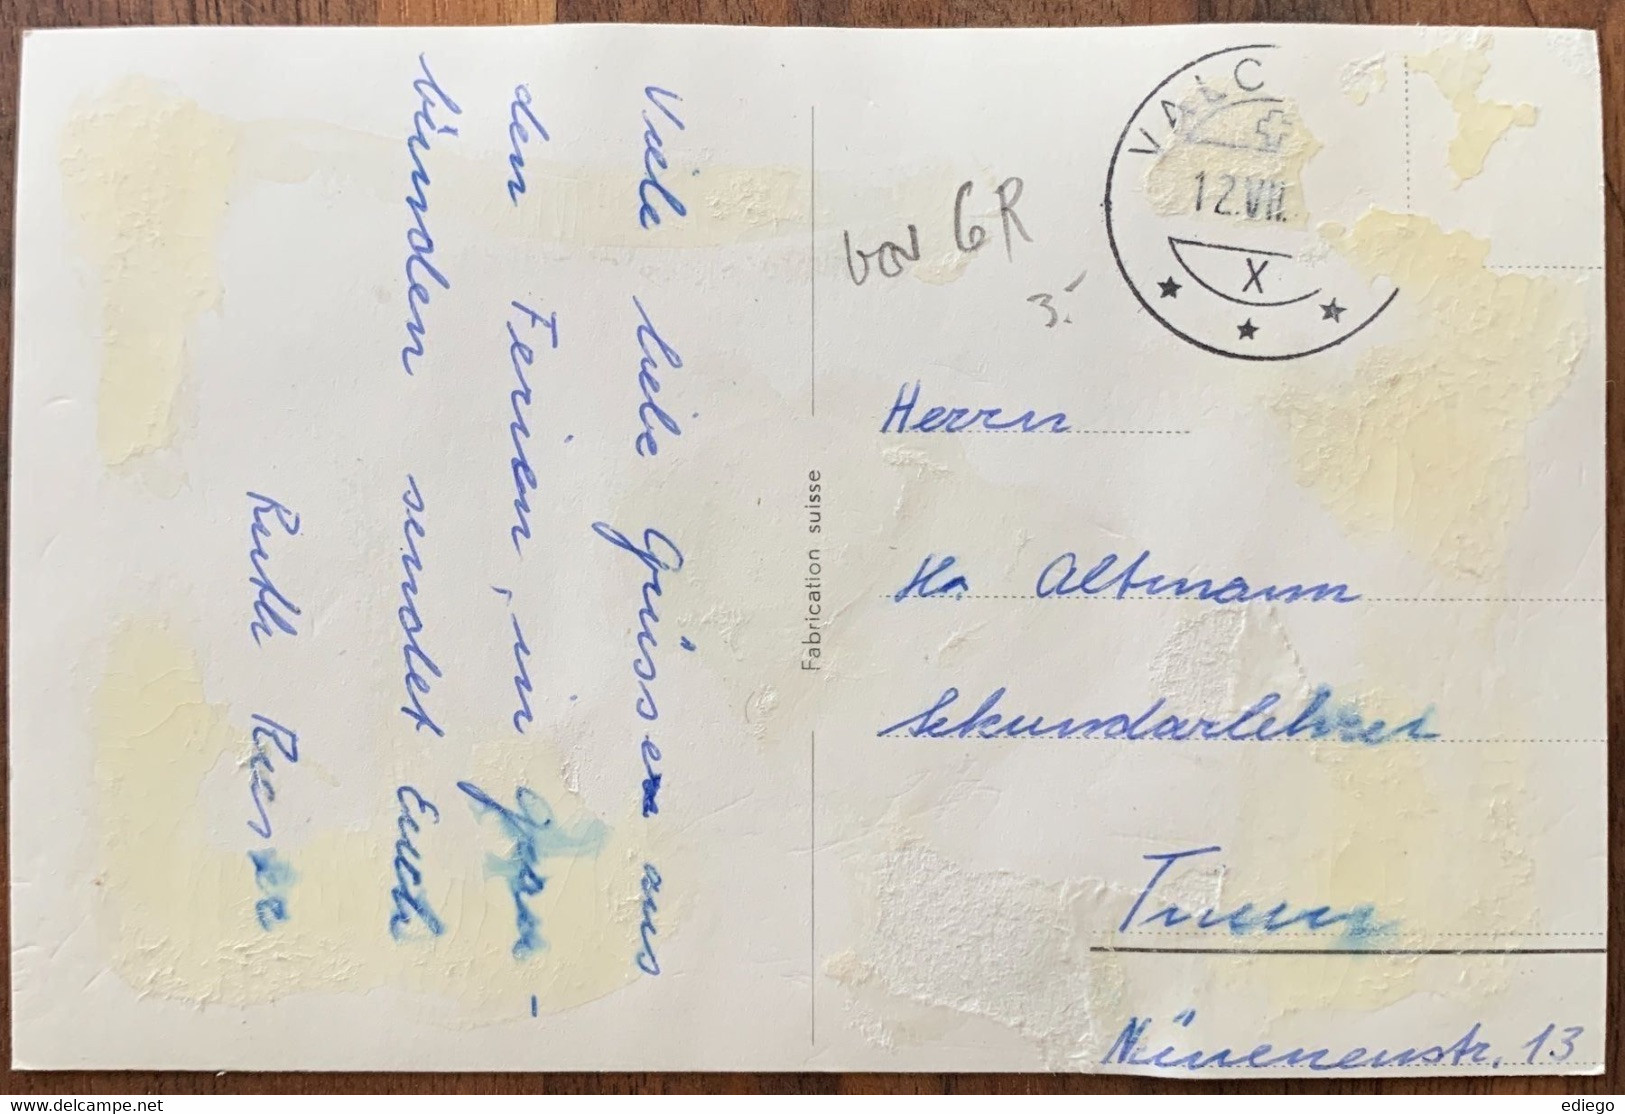 Viele liebe Grüsse aus
den Ferien, in Grau-
bünden sendet Euch
Ruth
Fabrication suisse
VALC
12.VII.
X
GR
3.-
Herrn
Hr. Altmann
Sekundarlehrer
Thun
Nünenenstr. 13
ediego